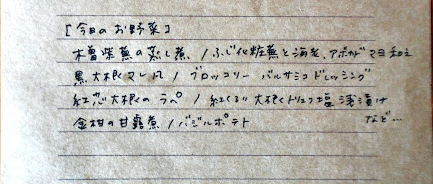 [今日のお野菜]
木曽紫蕪の蒸し煮 / ふじ化粧蕪と海老、アボカド マヨ和え
黒大根マレ風 / ブロッコリー バルサミコドレッシング
紅芯大根のラペ / 紅くるり大根トリュフ塩浅漬け
金柑の甘露煮 / バジルポテト など…